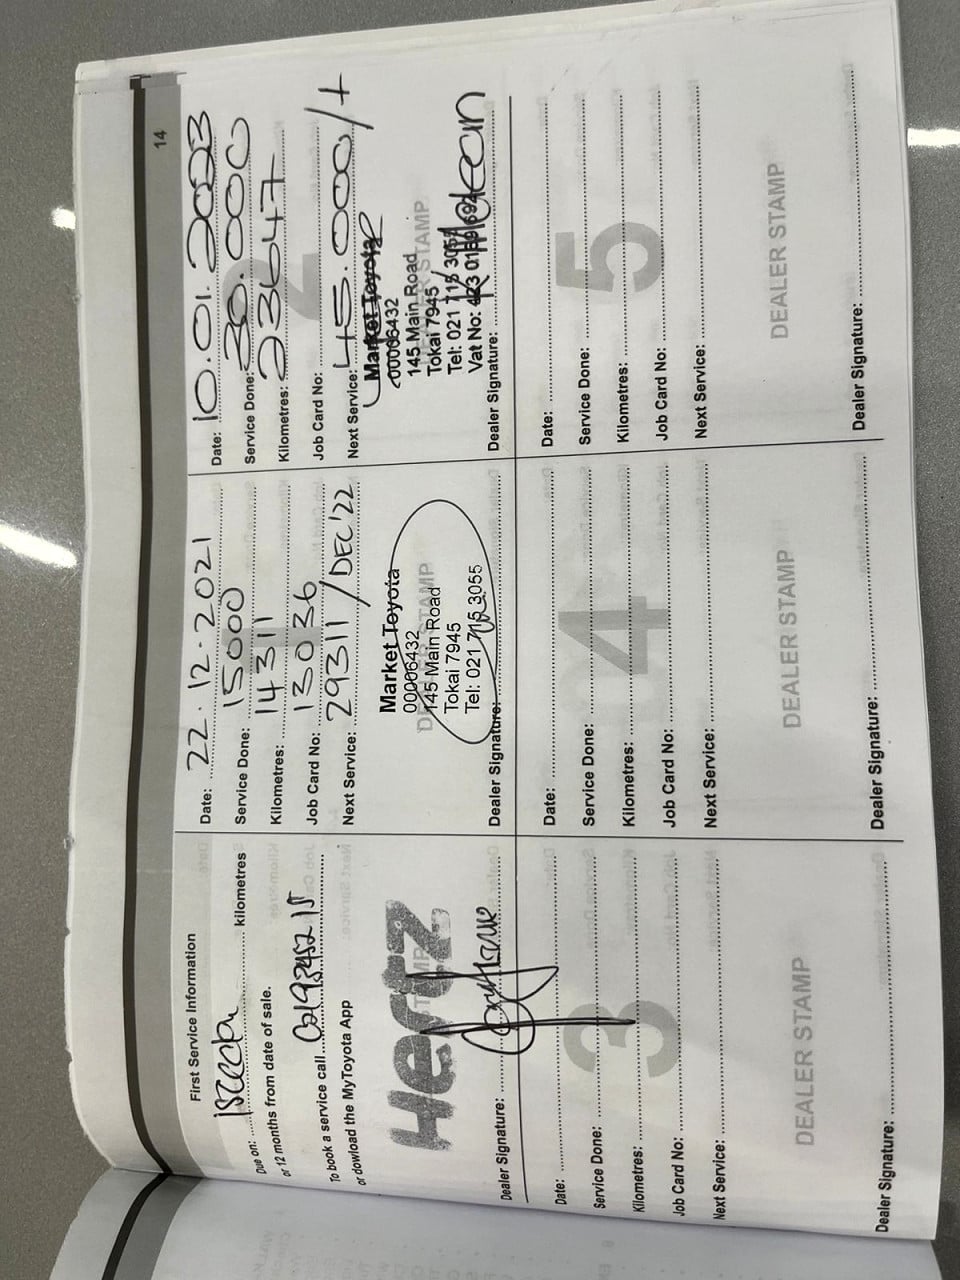 14
First Service Information
Due on: 15000km kilometres
or 12 months from date of sale.
To book a service call
or dowload the MyToyota App
Hertz
Dealer Signature:
Date: 22.12.2021
Service Done: 15000
Kilometres: 14311
Job Card No: 13036
Next Service: 29311 / DEC'22
DEALER STAMP
Market Toyota
00006432
145 Main Road
Tokai 7945
Tel: 021 715 3055
Dealer Signature:
2
Date: 10.01.2023
Service Done: 30.000
Kilometres: 23647
Job Card No:
Next Service: 45.000/+
DEALER STAMP
Market Toyota
00006432
145 Main Road
Tokai 7945
Tel: 021 715 3055
Vat No:
Dealer Signature:
3
Date:
Service Done:
Kilometres:
Job Card No:
Next Service:
DEALER STAMP
Dealer Signature:
4
Date:
Service Done:
Kilometres:
Job Card No:
Next Service:
DEALER STAMP
Dealer Signature:
5
Date:
Service Done:
Kilometres:
Job Card No:
Next Service:
DEALER STAMP
Dealer Signature: